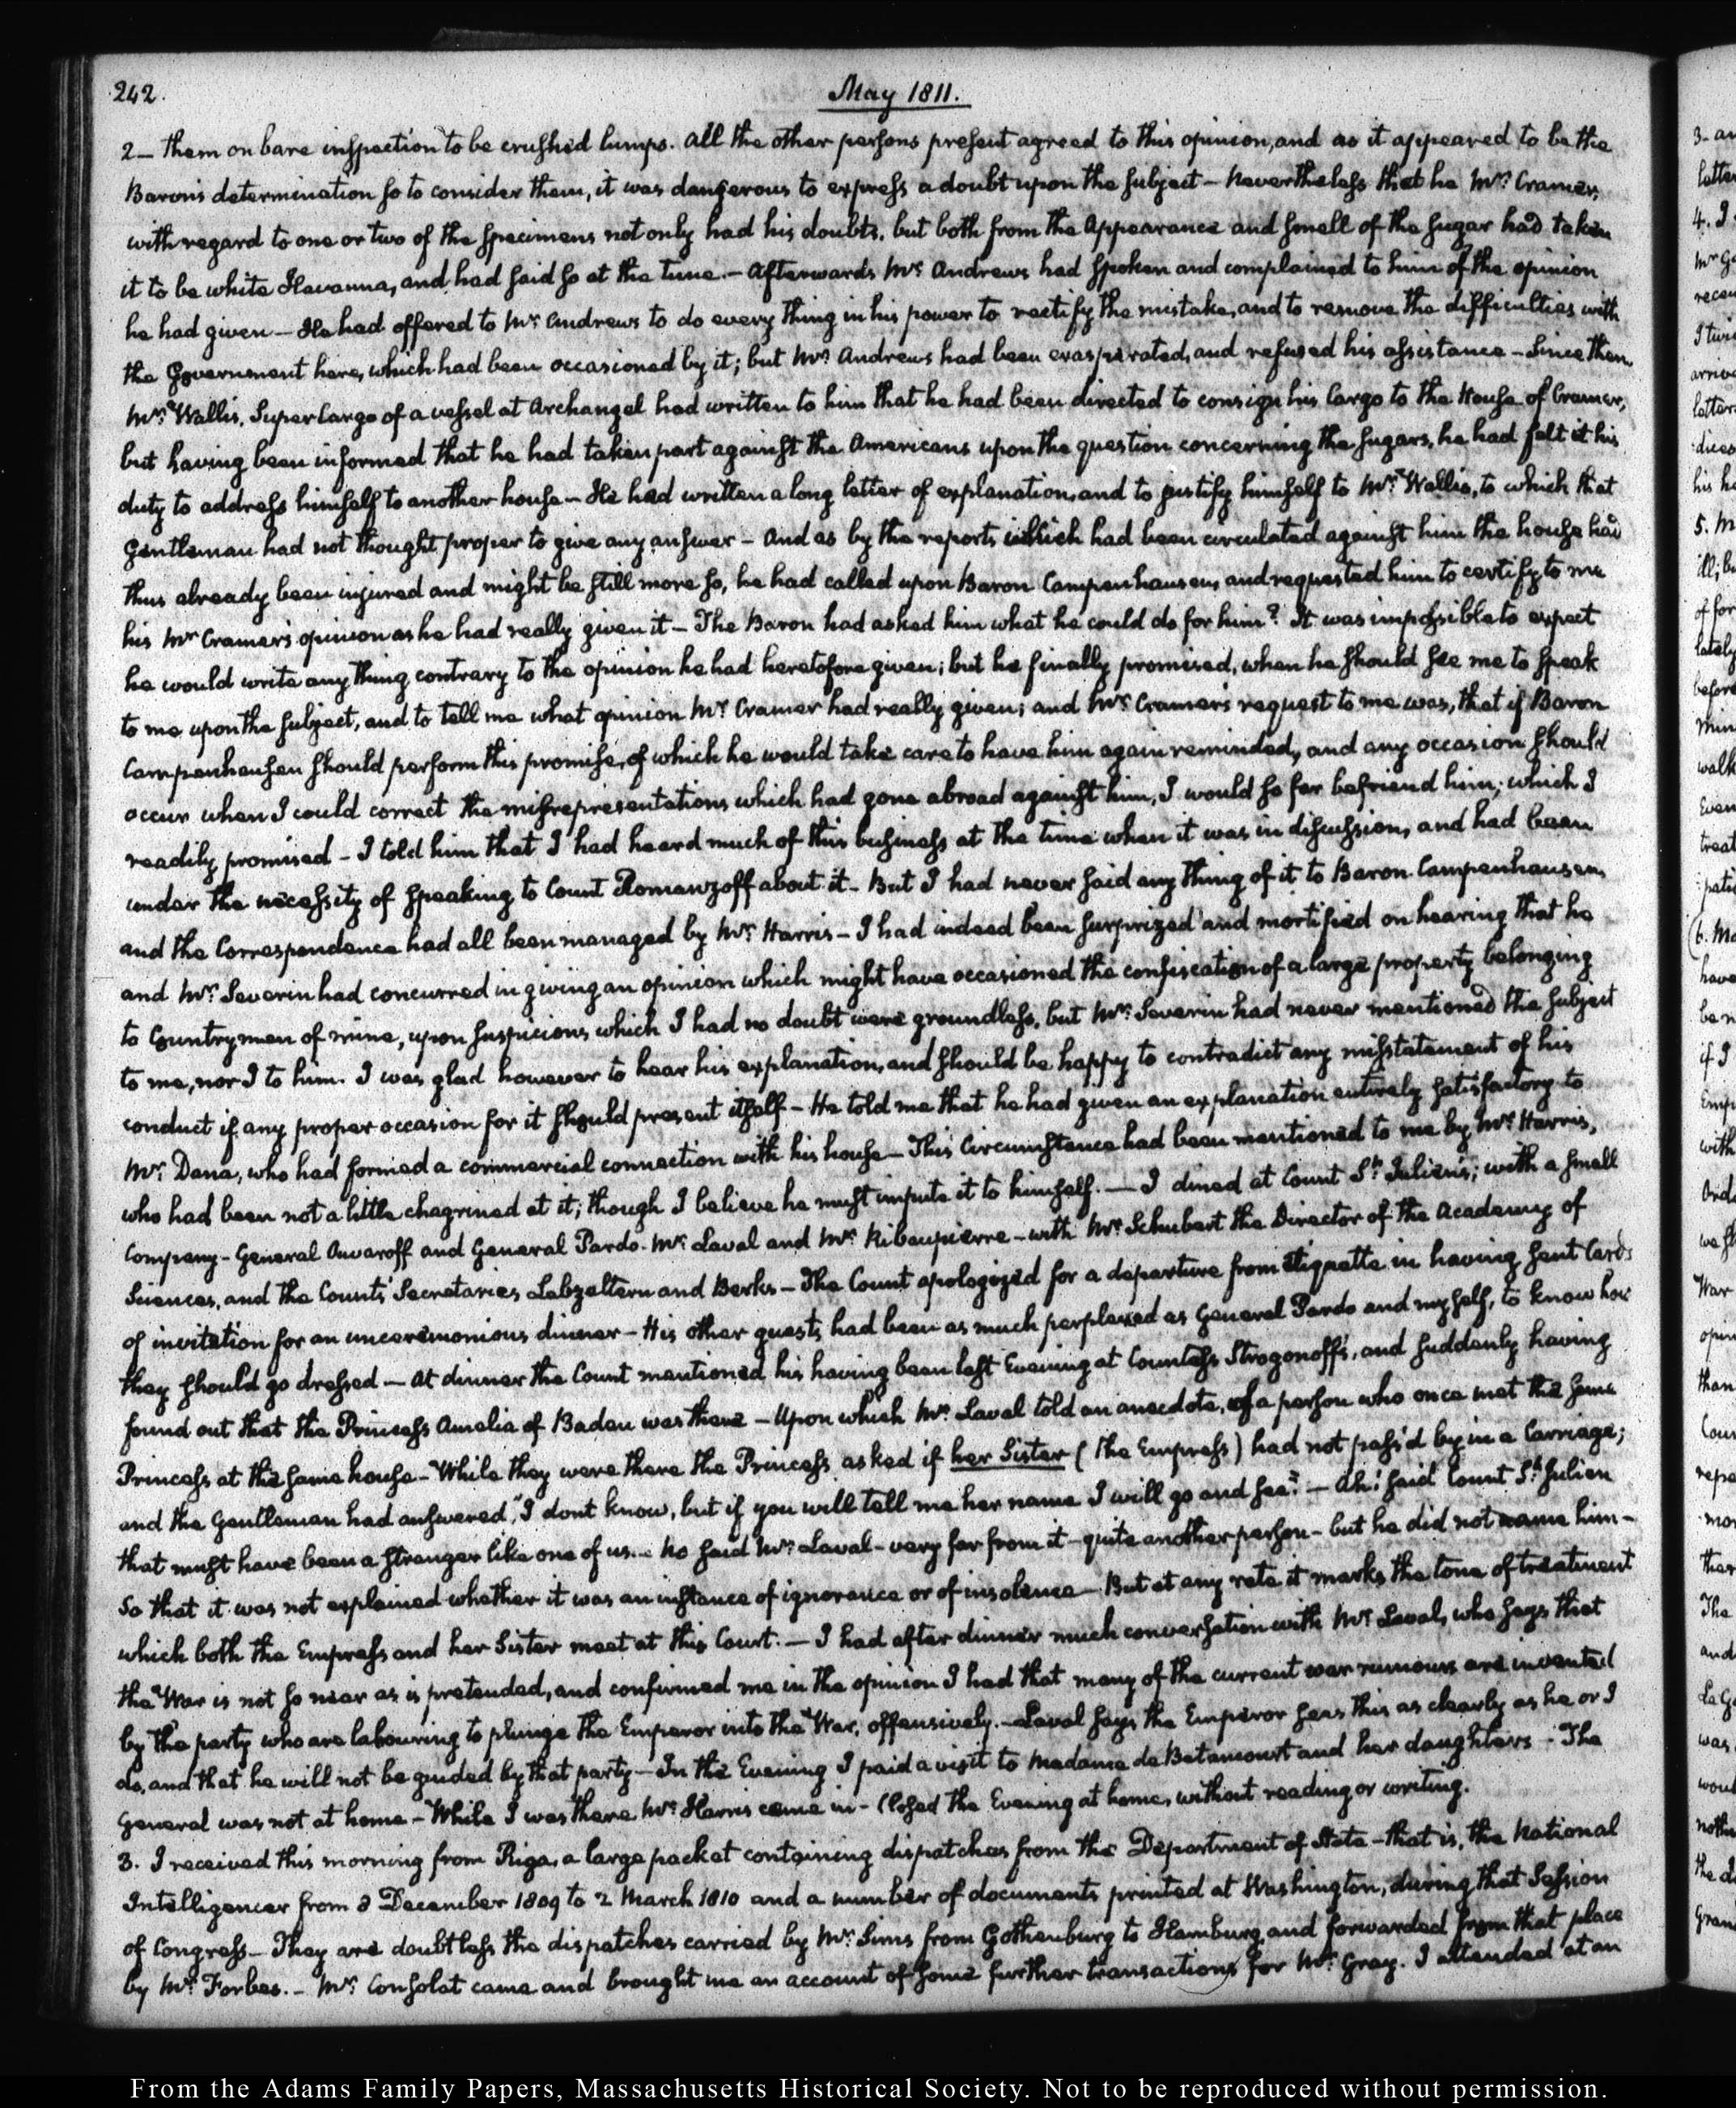 242.
May 1811.
2— them on bare inspection to be crushed lumps. All the other persons present agreed to this opinion, and as it appeared to be the
Baron's determination so to consider them, it was dangerous to express a doubt upon the subject — Nevertheless that he Mr. Cramer,
with regard to one or two of the specimens not only had his doubts, but both from the Appearance and smell of the sugar had taken
it to be white Havanna, and had said so at the time. — Afterwards Mr. Andrews had spoken and complained to him of the opinion
he had given — He had offered to Mr. Andrews to do every thing in his power to rectify the mistake, and to remove the difficulties with
the Government here, which had been occasioned by it; but Mr. Andrews had been exasperated, and refused his assistance — Since then,
Mr. Wallis, Supercargo of a vessel at Archangel had written to him that he had been directed to consign his Cargo to the House of Cramer,
but having been informed that he had taken part against the Americans upon the question concerning the sugars, he had felt it his
duty to address himself to another house — He had written a long letter of explanation, and to justify himself to Mr. Wallis, to which that
Gentleman had not thought proper to give any answer — And as by the reports which had been circulated against him the house had
thus already been injured and might be still more so, he had called upon Baron Campenhausen, and requested him to certify to me
his Mr Cramer's opinion as he had really given it — The Baron had asked him what he could do for him? It was impossible to expect
he would write any thing contrary to the opinion he had heretofore given; but he finally promised, when he should see me to speak
to me upon the subject, and to tell me what opinion Mr. Cramer had really given; and Mr. Cramer's request to me was, that if Baron
Campenhausen should perform this promise, of which he would take care to have him again reminded, and any occasion should
occur when I could correct the misrepresentations which had gone abroad against him, I would so far befriend him; which I
readily promised — I told him that I had heard much of this business at the time when it was in discussion, and had been
under the necessity of speaking to Count Romanzoff about it — But I had never said any thing of it to Baron Campenhausen,
and the Correspondence had all been managed by Mr. Harris — I had indeed been surprized and mortified on hearing that he
and Mr. Severin had concurred in giving an opinion which might have occasioned the confiscation of a large property belonging
to Countrymen of mine, upon suspicions which I had no doubt were groundless, but Mr. Severin had never mentioned the subject
to me, nor I to him. I was glad however to hear his explanation, and should be happy to contradict any misstatement of his
conduct if any proper occasion for it should present itself — He told me that he had given an explanation entirely satisfactory to
Mr. Dana, who had formed a commercial connection with his house — This Circumstance had been mentioned to me by Mr. Harris,
who had been not a little chagrined at it; though I believe he must impute it to himself. — I dined at Count St. Julien's; with a small
Company — General Ouvaroff and General Pardo. Mr. Laval and Mr. Ribaupierre — with Mr. Schubert the Director of the Academy of
Sciences, and the Counts' Secretaries Lebzeltern and Berks — The Count apologized for a departure from Etiquette in having sent Cards
of invitation for an unceremonious dinner — His other guests had been as much perplexed as General Pardo and myself, to know how
they should go dressed — At dinner the Count mentioned his having been last Evening at Countess Strogonoff's, and suddenly having
found out that the Princess Amelia of Baden was there — Upon which Mr. Laval told an anecdote, of a person who once met the same
Princess at the same house — While they were there the Princess asked if her Sister (the Empress) had not pass'd by in a Carriage;
and the Gentleman had answered, "I dont know, but if you will tell me her name I will go and see." — Ah! said Count St. Julien
that must have been a stranger like one of us. — No said Mr. Laval — very far from it — quite another person — but he did not name him —
So that it was not explained whether it was an instance of ignorance or of insolence — But at any rate it marks the tone of treatment
which both the Empress and her Sister meet at this Court. — I had after dinner much conversation with Mr. Laval, who says that
the War is not so near as is pretended, and confirmed me in the opinion I had that many of the current war rumours are invented
by the party who are labouring to plunge the Emperor into the War, offensively. — Laval says the Emperor sees this as clearly as he or I
do, and that he will not be guided by that party — In the Evening I paid a visit to Madame de Betancourt and her daughters — The
General was not at home — While I was there Mr. Harris came in — Closed the Evening at home, without reading or writing.
3. I received this morning from Riga, a large packet containing dispatches from the Department of State — that is, the National
Intelligencer from 8 December 1809 to 2 March 1810 and a number of documents printed at Washington, during that Session
of Congress — They are doubtless the dispatches carried by Mr. Sims from Gothenburg to Hamburg and forwarded from that place
by Mr. Forbes. — Mr. Consolat came and brought me an account of some further transactions for Mr. Gray. I attended at an
From the Adams Family Papers, Massachusetts Historical Society. Not to be reproduced without permission.